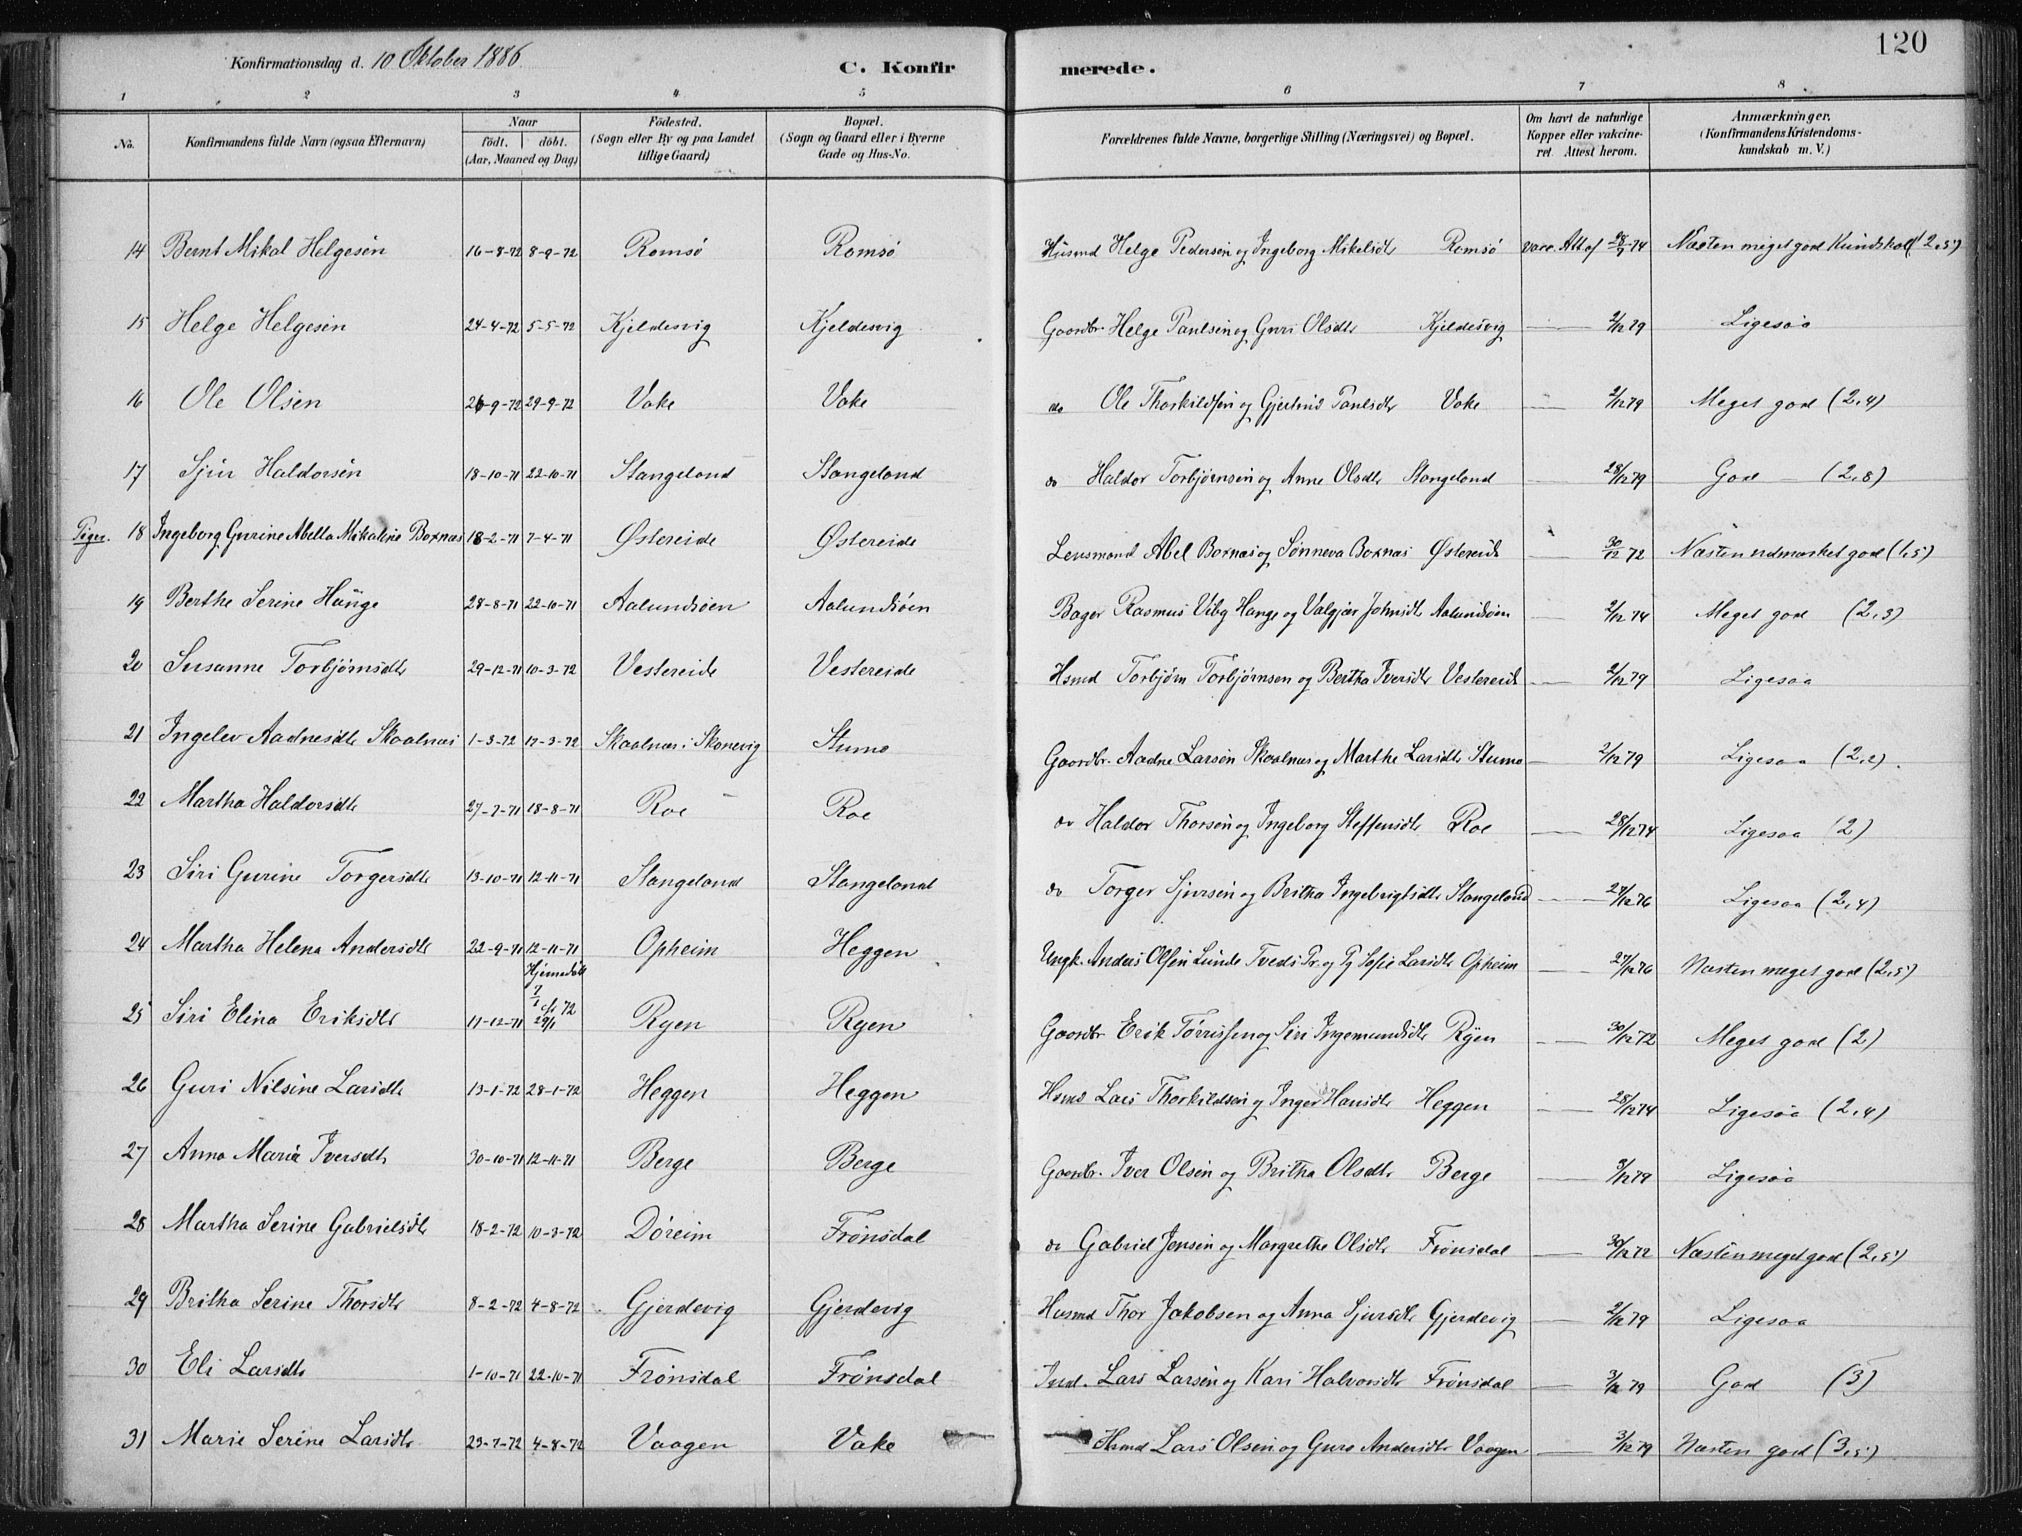 120
Konfirmationsdag d. 10 Oktober 1886.
C. Konfirmerede.
1 2 3 4 5 6 7 8
No. | Konfirmandens fulde Navn (ogsaa Efternavn) | Naar født. | døbt. (Aar, Maaned og Dag) | Fødested. (Sogn eller By og paa Landet tillige Gaard) | Bopæl. (Sogn og Gaard eller i Byerne Gade og Hus-No. | Forældrenes fulde Navne, borgerlige Stilling (Næringsvei) og Bopæl. | Om havt de naturlige Kopper eller vakcineret. Attest herom. | Anmærkninger. (Konfirmandens Kristendomskundskab m. V.)
14 Bernt Mikal Helgesen 16-8-72 8-9-72 Romsø Romsø Husmd Helge Pedersen og Ingeborg Mikelsdtr Romsø vacc. Att af 74 Næsten meget god Kundskab (2,5)
15 Helge Helgesen 24-4-72 5-5-72 Kjeldesvig Kjeldesvig Gaardbr. Helge Paulsen og Guri Olsdtr Kjeldesvig — 2/12 79 Ligesaa
16 Ole Olsen 26-9-72 29-9-72 Vake Vake do Ole Thorkildsen og Gjertrud Paulsdtr Vake — 2/12 79 Meget god (2,4)
17 Sjur Haldorsen 18-10-71 22-10-71 Stangeland Stangeland do Haldor Torbjørnsen og Anne Olsdtr Stangeland — 28/12 79 God — (2,8)
Piger. 18 Ingeborg Gurine Abella Mikaline Boxnæs 18-2-71 7-4-71 Østereide Østereide Lensmand Abel Boxnæs og Sønneva Boxnæs Østereide — 30/12 72 Næsten udmærket god (1,5)
19 Berthe Serine Hauge 28-8-71 22-10-71 Aalundsøen Aalundsøen Bager Rasmus Viby Hauge og Valgjær Johnsdtr Aalundsøen — 2/12 74 Meget god (2,3)
20 Susanne Torbjørnsdtr 29-12-71 10-3-72 Vestereide Vestereide Hsmd Torbjørn Torbjørnsen og Bertha Iversdtr Vestereide — 2/12 79 Ligesaa
21 Ingelev Aadnesdtr Skaalnæs 1-3-72 17-3-72 Skaalnæs i Skonevig Stumo Gaardbr. Aadne Larsen Skaalnæs og Marthe Larsdtr Stumo — 2/12 79 Ligesaa (2,2).
22 Martha Haldorsdtr 27-7-71 18-8-71 Roe Roe do Haldor Thorsen og Ingeborg Steffensdtr Roe — 28/12 74 Ligesaa (2)
23 Siri Gurine Torgersdtr 13-10-71 12-11-71 Stangeland Stangeland do Torger Sjursen og Britha Ingebrigtsdtr Stangeland — 27/12 76 Ligesaa (2,4)
24 Martha Helena Andersdtr 22-9-71 12-11-71 Opheim Heggen Ungk. Anders Olsen Lunde Tveds Pr. og Pg Sofie Larsdtr Opheim — 27/12 76 Næsten meget god (2,5)
25 Siri Elina Eriksdtr 11-12-71 Hjemmedøbt 72 29/1 Ryen Ryen Gaardbr Erik Tørrissen og Siri Ingemundsdtr Ryen — 30/12 72 Meget god (2)
26 Guri Nilsine Larsdtr 13-1-72 28-1-72 Heggen Heggen Hsmd Lars Thorkildsen og Inger Hansdtr Heggen — 28/12 74 Ligesaa (2,4)
27 Anna Maria Iversdtr 30-10-71 12-11-71 Berge Berge Gaardbr. Iver Olsen og Britha Olsdtr Berge — 3/12 79 Ligesaa
28 Martha Serine Gabrielsdtr 18-2-72 10-3-72 Døreim Frønsdal do Gabriel Jensen og Margrethe Olsdtr Frønsdal — 30/12 72 Næsten meget god (2,5)
29 Britha Serine Thorsdtr 8-2-72 4-8-72 Gjerdevig Gjerdevig Husmd Thor Jakobsen og Anna Sjursdtr Gjerdevig — 2/12 79 Ligesaa
30 Eli Larsdtr 1-10-71 22-10-71 Frønsdal Frønsdal Ind. Lars Larsen og Kari Halvorsdtr Frønsdal — 3/12 79 God (3)
31 Marie Serine Larsdtr 23-7-72 4-8-72 Vaagen Vake Hsmd Lars Olsen og Guro Andersdtr Vaagen — 3/12 79 Næsten god (3,5)